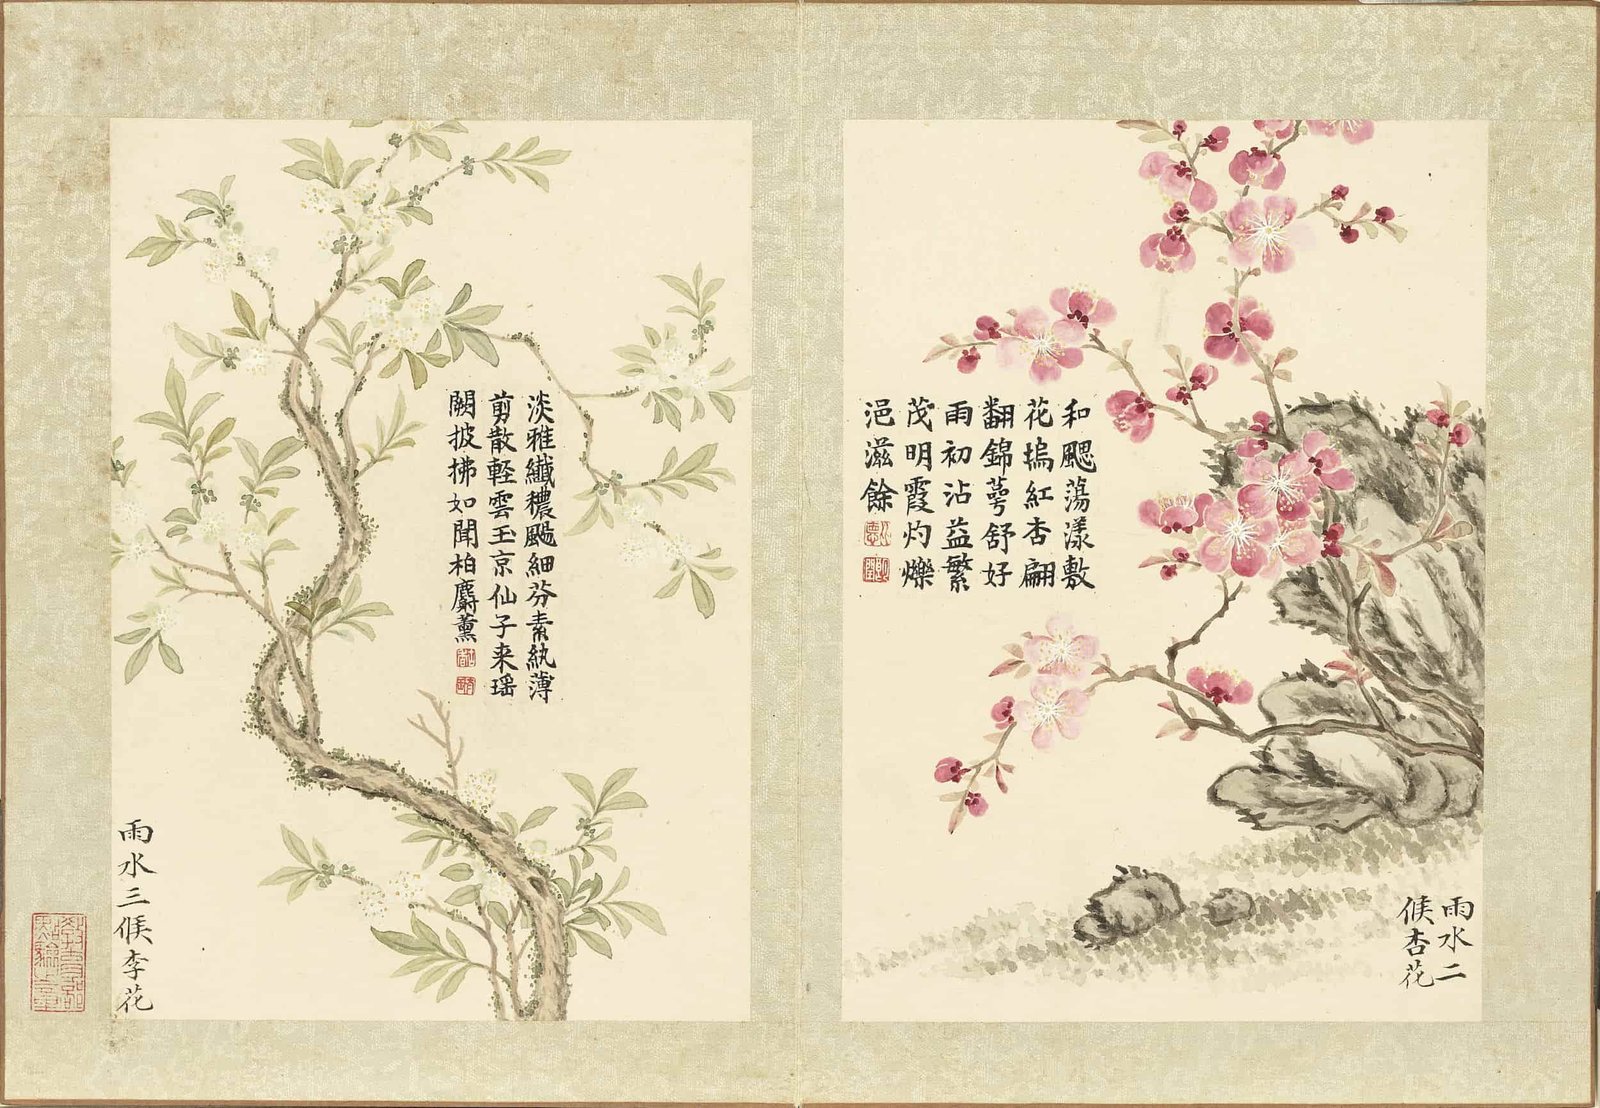 和颸蕩漾敷
花塢紅杏翩
翻錦萼舒好
雨初沾益繁
茂明霞灼爍
浥滋餘
雨水二
候杏花
淡雅纖穠颺細芬素紈薄
剪散輕雲玉京仙子来瑶
闕披拂如聞柏麝薰
雨水三候李花